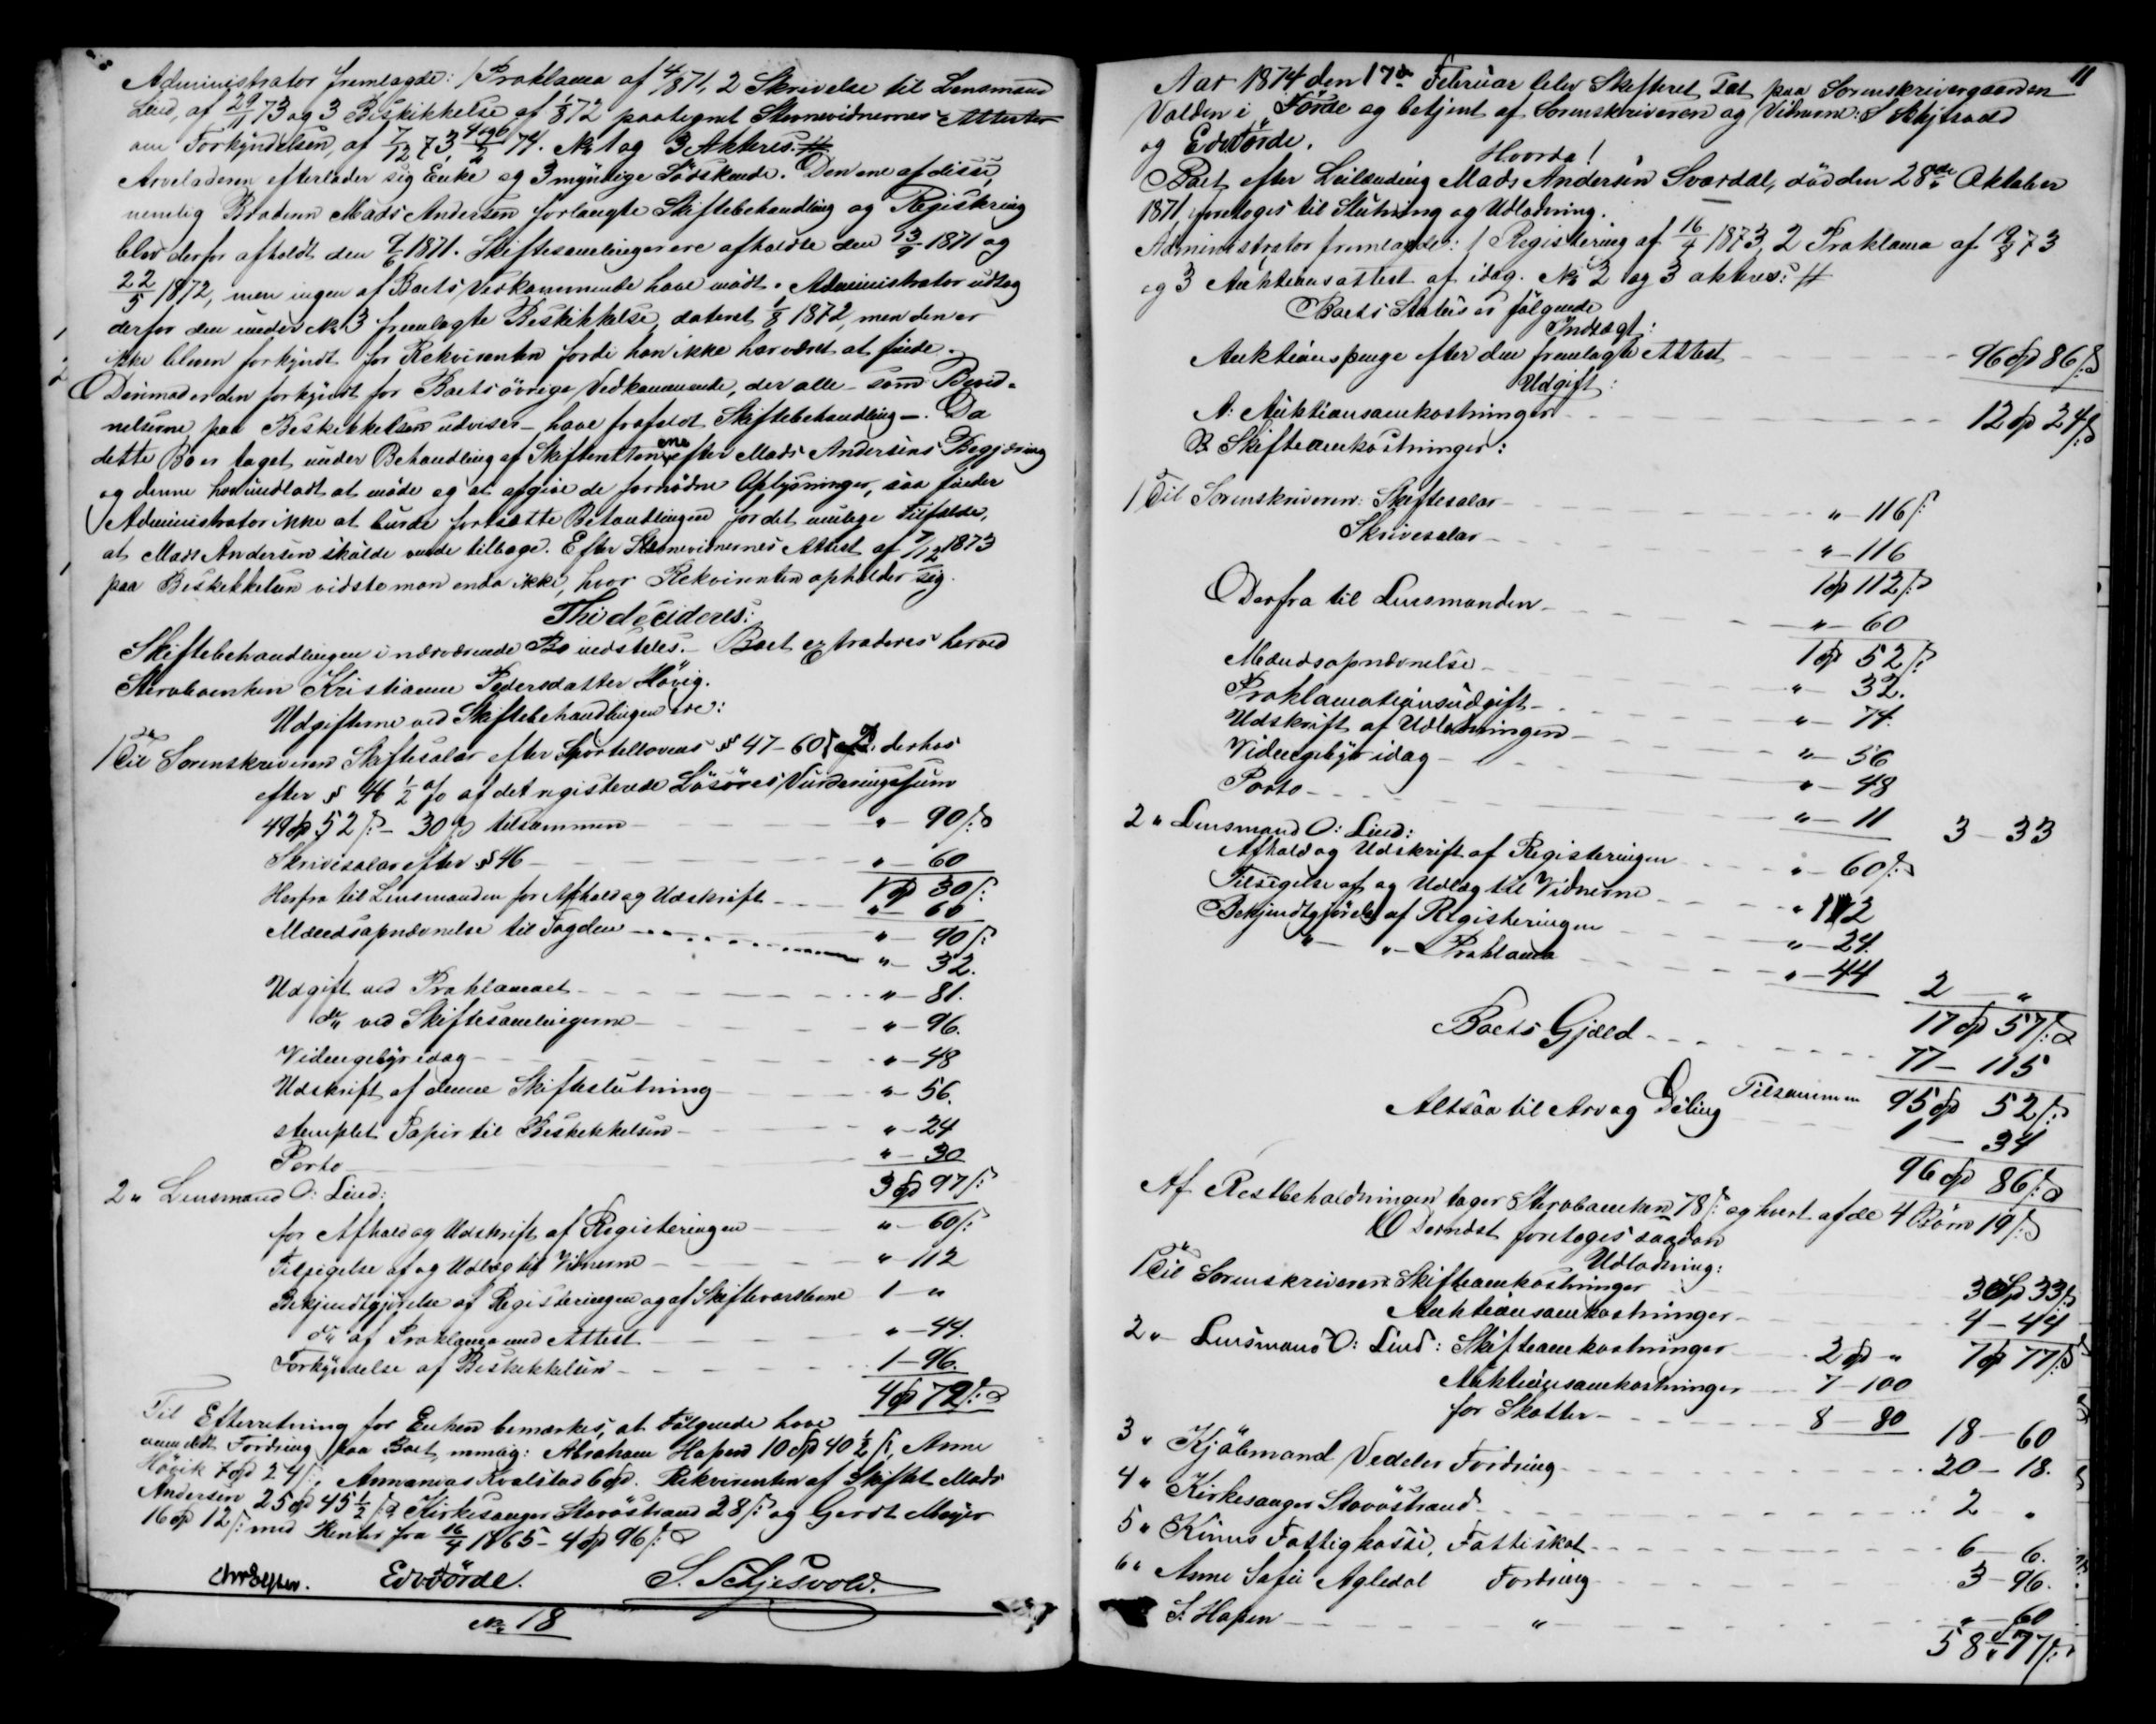 Administrator fremlagde: 1 Proklama af 4/8 71, 2 Skrivelse til Lensmand
Lind, af 29/11 73 og 3 Beskikkelse af 1/8 72 paategnet Stevnevidnernes Attester
om Forkyndelsen, af 7/12 73, 4 og 6/2 74. No 1 og 3 Akteres: #
Arveladeren efterlader sig Enke og 3 myndige Södskende. Den ene af disse,
nemlig Broderen Mads Andersen forlangte Skiftebehandling og Registrering
blev derfor afholdt den 9/6 1871. Skiftesamlinger ere afholdte den 13/9 1871 og
22/5 1872, men ingen af Boets Vedkommende have mödt. Administrator udtog
derfor den under No 3 fremlagte Beskikkelse, dateret 1/8 1872, men den er
ikke bleven forkyndt for Rekvirenten fordi han ikke har været at finde.
Derimod er den forkyndt for Boets övrige Vedkommende, der alle - som Bevid-
nelserne paa Beskikkelsen udviser - have frafaldt Skiftebehandling -. Da
dette Bo er taget under Behandling af Skifteretten ene efter Mads Andersens Begjæring
og denne har undladt at möde og at afgive de fornödne Oplysninger, saa finder
Administrator ikke at burde fortsætte Behandlingen for det mulige Tilfælde,
at Mads Andersen skulde vende tilbage. Efter Stevnevidnernes Attest af 7/12 1873
paa Beskikkelsen vidste man enda ikke, hvor Rekvirenten opholder sig.
Thi decideres:
Skiftebehandlingen i nærværende Bo indstilles. - Boet extraderes herved
Stervboenken Kristianne Pedersdatter Hövig.
Udgifterne ved Skiftebehandlingen ere:
1 Til Sorenskriveren Skiftesalar efter Sportellovens § 47 - 60 ß derhos
efter § 46 1/2 % af det registrerede Lösöres Vurderingssum
49 Sp 52 ß - 30 ß tilsammen " - 90 ß
Skrivesalar efter § 46 - " - 60
1 Sp 30 ß
Herfra til Lensmanden for Afhold og Udskrift " - 60
" - 90 ß
Mændsopnævnelse til Fogden " - 32.
Udgift ved Proklamaet " - 81.
do ved Skiftesamlingerne " - 96.
Vidnegebyr idag " - 48
Udskrift af denne Skifteslutning " - 56.
stemplet Papir til Beskikkelsen " - 24
Porto " - 30
3 Sp 97 ß
2 " Lensmand O: Lind:
for Afhold og Udskrift af Registeringen " - 60 ß
Tilsigelse af og Udlæg til Vidnerne " - 112
Bekjendtgjörelse af Registeringen og af Skiftevarslerne 1 - "
do af Proklama med Attest " - 44.
Forkyndelse af Beskikkelsen 1 - 96.
4 Sp 72 ß
Til Efterretning for Enken bemærkes, at Fölgende have
anmeldt Fordring paa Boet, nemlig: Abraham Hopen 10 Sp 40 1/2 ß, Anne
Hövik 7 Sp 24 ß, Annanias Kvalstad 6 Sp. Rekvirenten af Skiftet Mads
Andersen 25 Sp 45 1/2 ß, Kirkesanger Storöstrand 28 ß og Gerdt Meyer
16 Sp 12 ß med Renter fra 16/4 1865 - 4 Sp 96 ß
Edv Förde. S. Schjesvold.
No 18
11
Aar 1874 den 17de Februar blev Skifteret sat paa Sorenskrivergaarden
Valden i Förde og betjent af Sorenskriveren og Vidnerne: S Schjesvold
og Edv Förde.
Hvorda!
Boet efter Leilænding Mads Andersen Svardal, död den 28de Oktober
1871, foretoges til Slutning og Udlodning.
Administrator fremlagde: 1 Registering af 16/4 1873, 2 Proklama af 19/3 73
og 3 Auktionsattest af idag. No 2 og 3 akteres: #
Boets Status er fölgende
Indtægt:
Auktionspenge efter den fremlagte Attest 96 Sp 86 ß
Udgift:
A: Auktionsomkostninger 12 Sp 24 ß
B Skifteomkostninger:
1 Til Sorenskriveren: Skiftesalar " - 116 ß
Skrivesalar " - 116
1 Sp 112 ß
Derfra til Lensmanden " - 60
1 Sp 52 ß
Mændsopnævnelse " - 32.
Proklamationsudgift " - 74.
Udskrift af Udlodningen " - 56
Vidnegebyr idag " - 48
Porto " - 11 3 - 33
2 " Lensmand O: Lind:
Afhold og Udskrift af Registeringen " - 60 ß
Tilsigelse af og Udlæg til Vidnerne " 112
Bekjendtgjörelse af Registeringen " - 24.
" - " - Proklama " - 44 2 - "
17 Sp 57 ß
Boets Gjæld 77 - 115
Tilsammen 95 Sp 52 ß
Altsaa til Arv og Deling 1 - 34
96 Sp 86 ß
Af Restbeholdningen tager Stervboenken 78 ß og hvert af de 4 Börn 19 ß
Dernæst foretoges saadan
Udlodning:
1 Til Sorenskriveren Skifteomkostninger 3 Sp 33 ß
Auktionsomkostninger 4 - 44
7 Sp 77 ß
2 " Lensmand O: Lind: Skifteomkostninger 2 Sp "
Auktionsomkostninger 7 - 100
for Skatter 8 - 80 18 - 60
3 " Kjöbmand Vedeler Fordring 20 - 18.
4 " Kirkesanger Storöstrand 2 - "
5 " Kinns Fattigkasse, Fattiskat 6 - 6.
6 " Anne Sofie Agledal Fordring 3 - 96.
S. Hopen " " - 60
58 " 77 ß